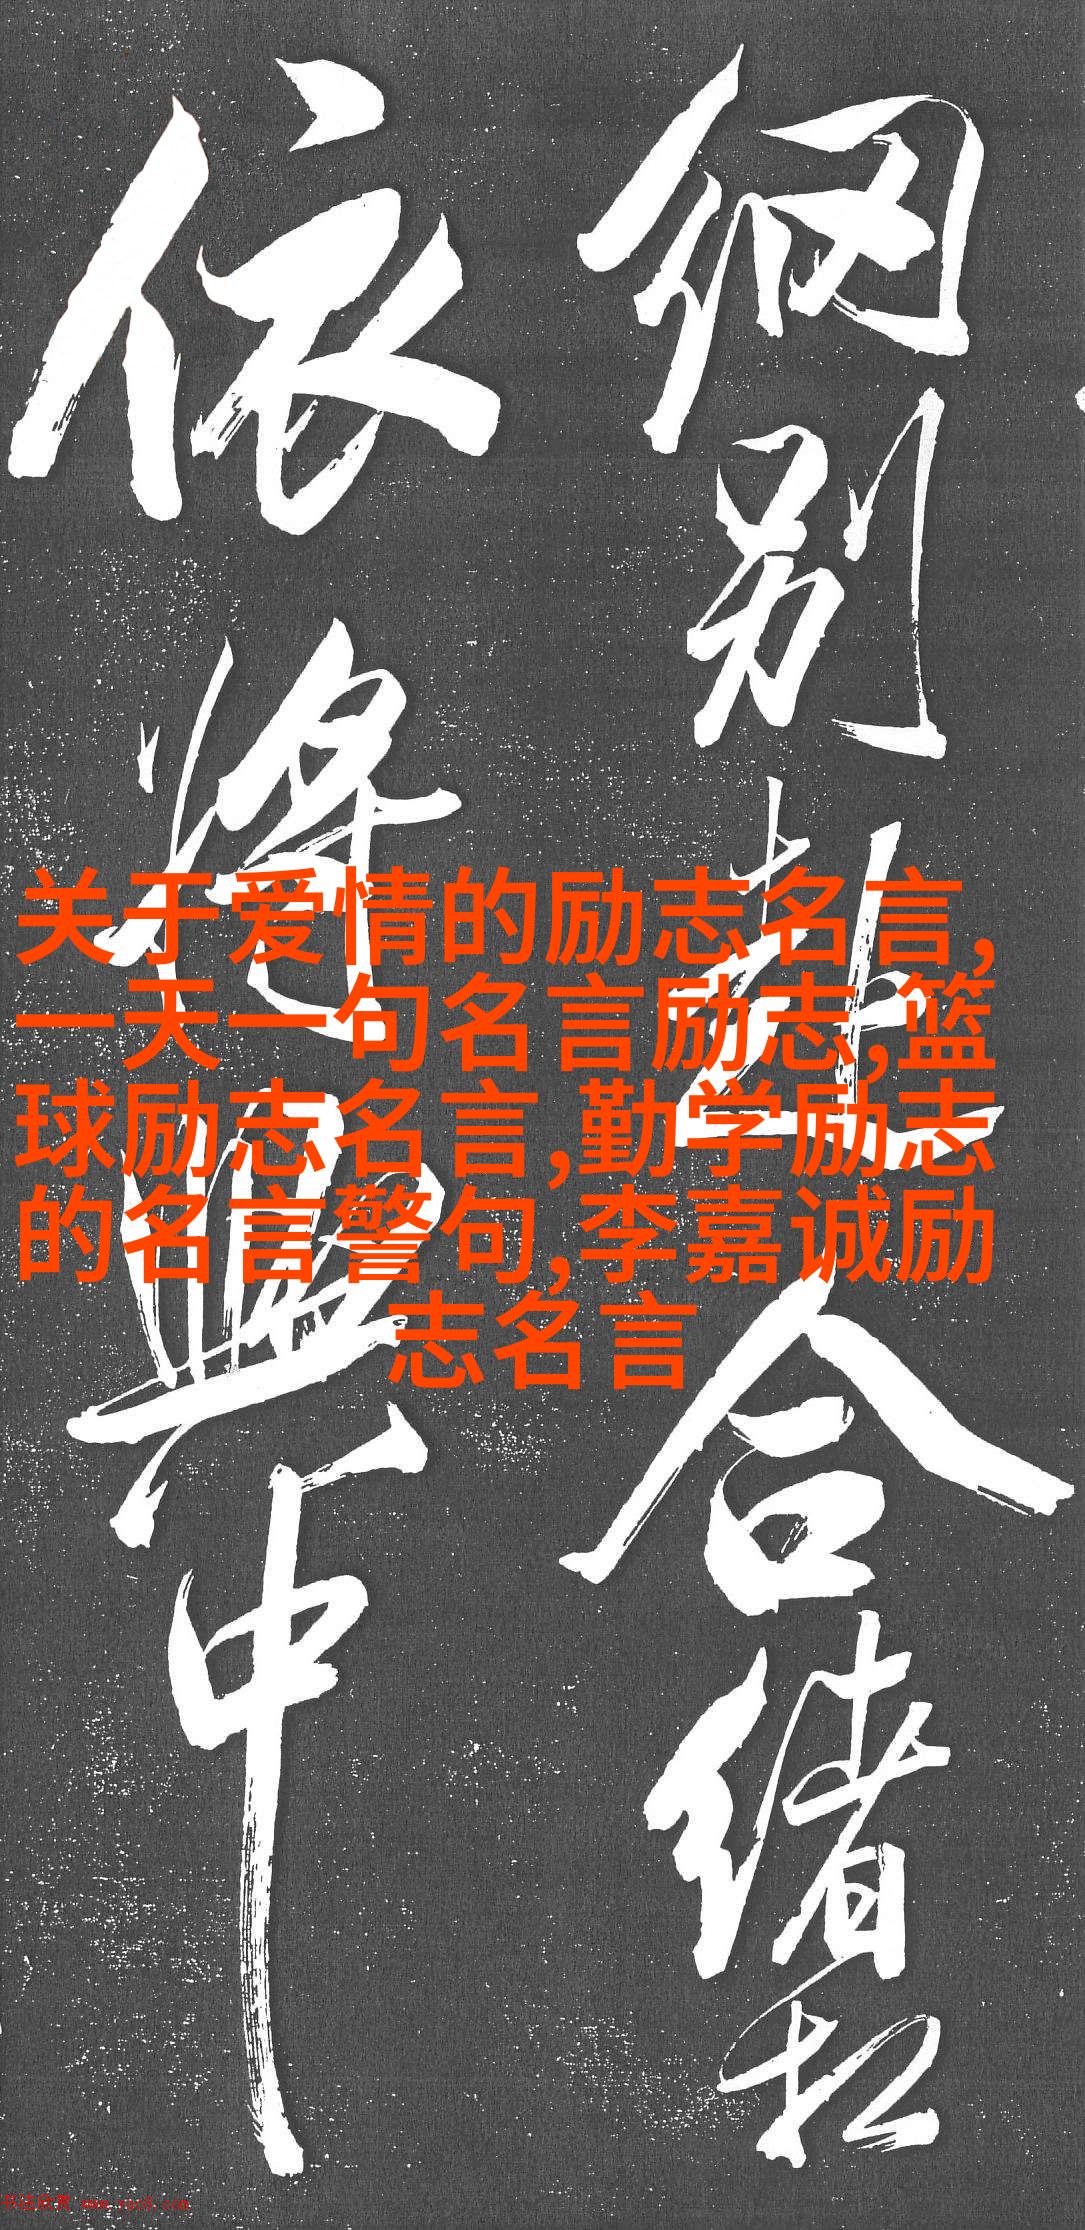 关于爱情的励志名言,
一天一句名言励志,篮
球励志名言,勤学励志
的名言警句,李嘉诚励
志名言
别赴合绪松
依将兴中
书法欣赏 www.yac8.com